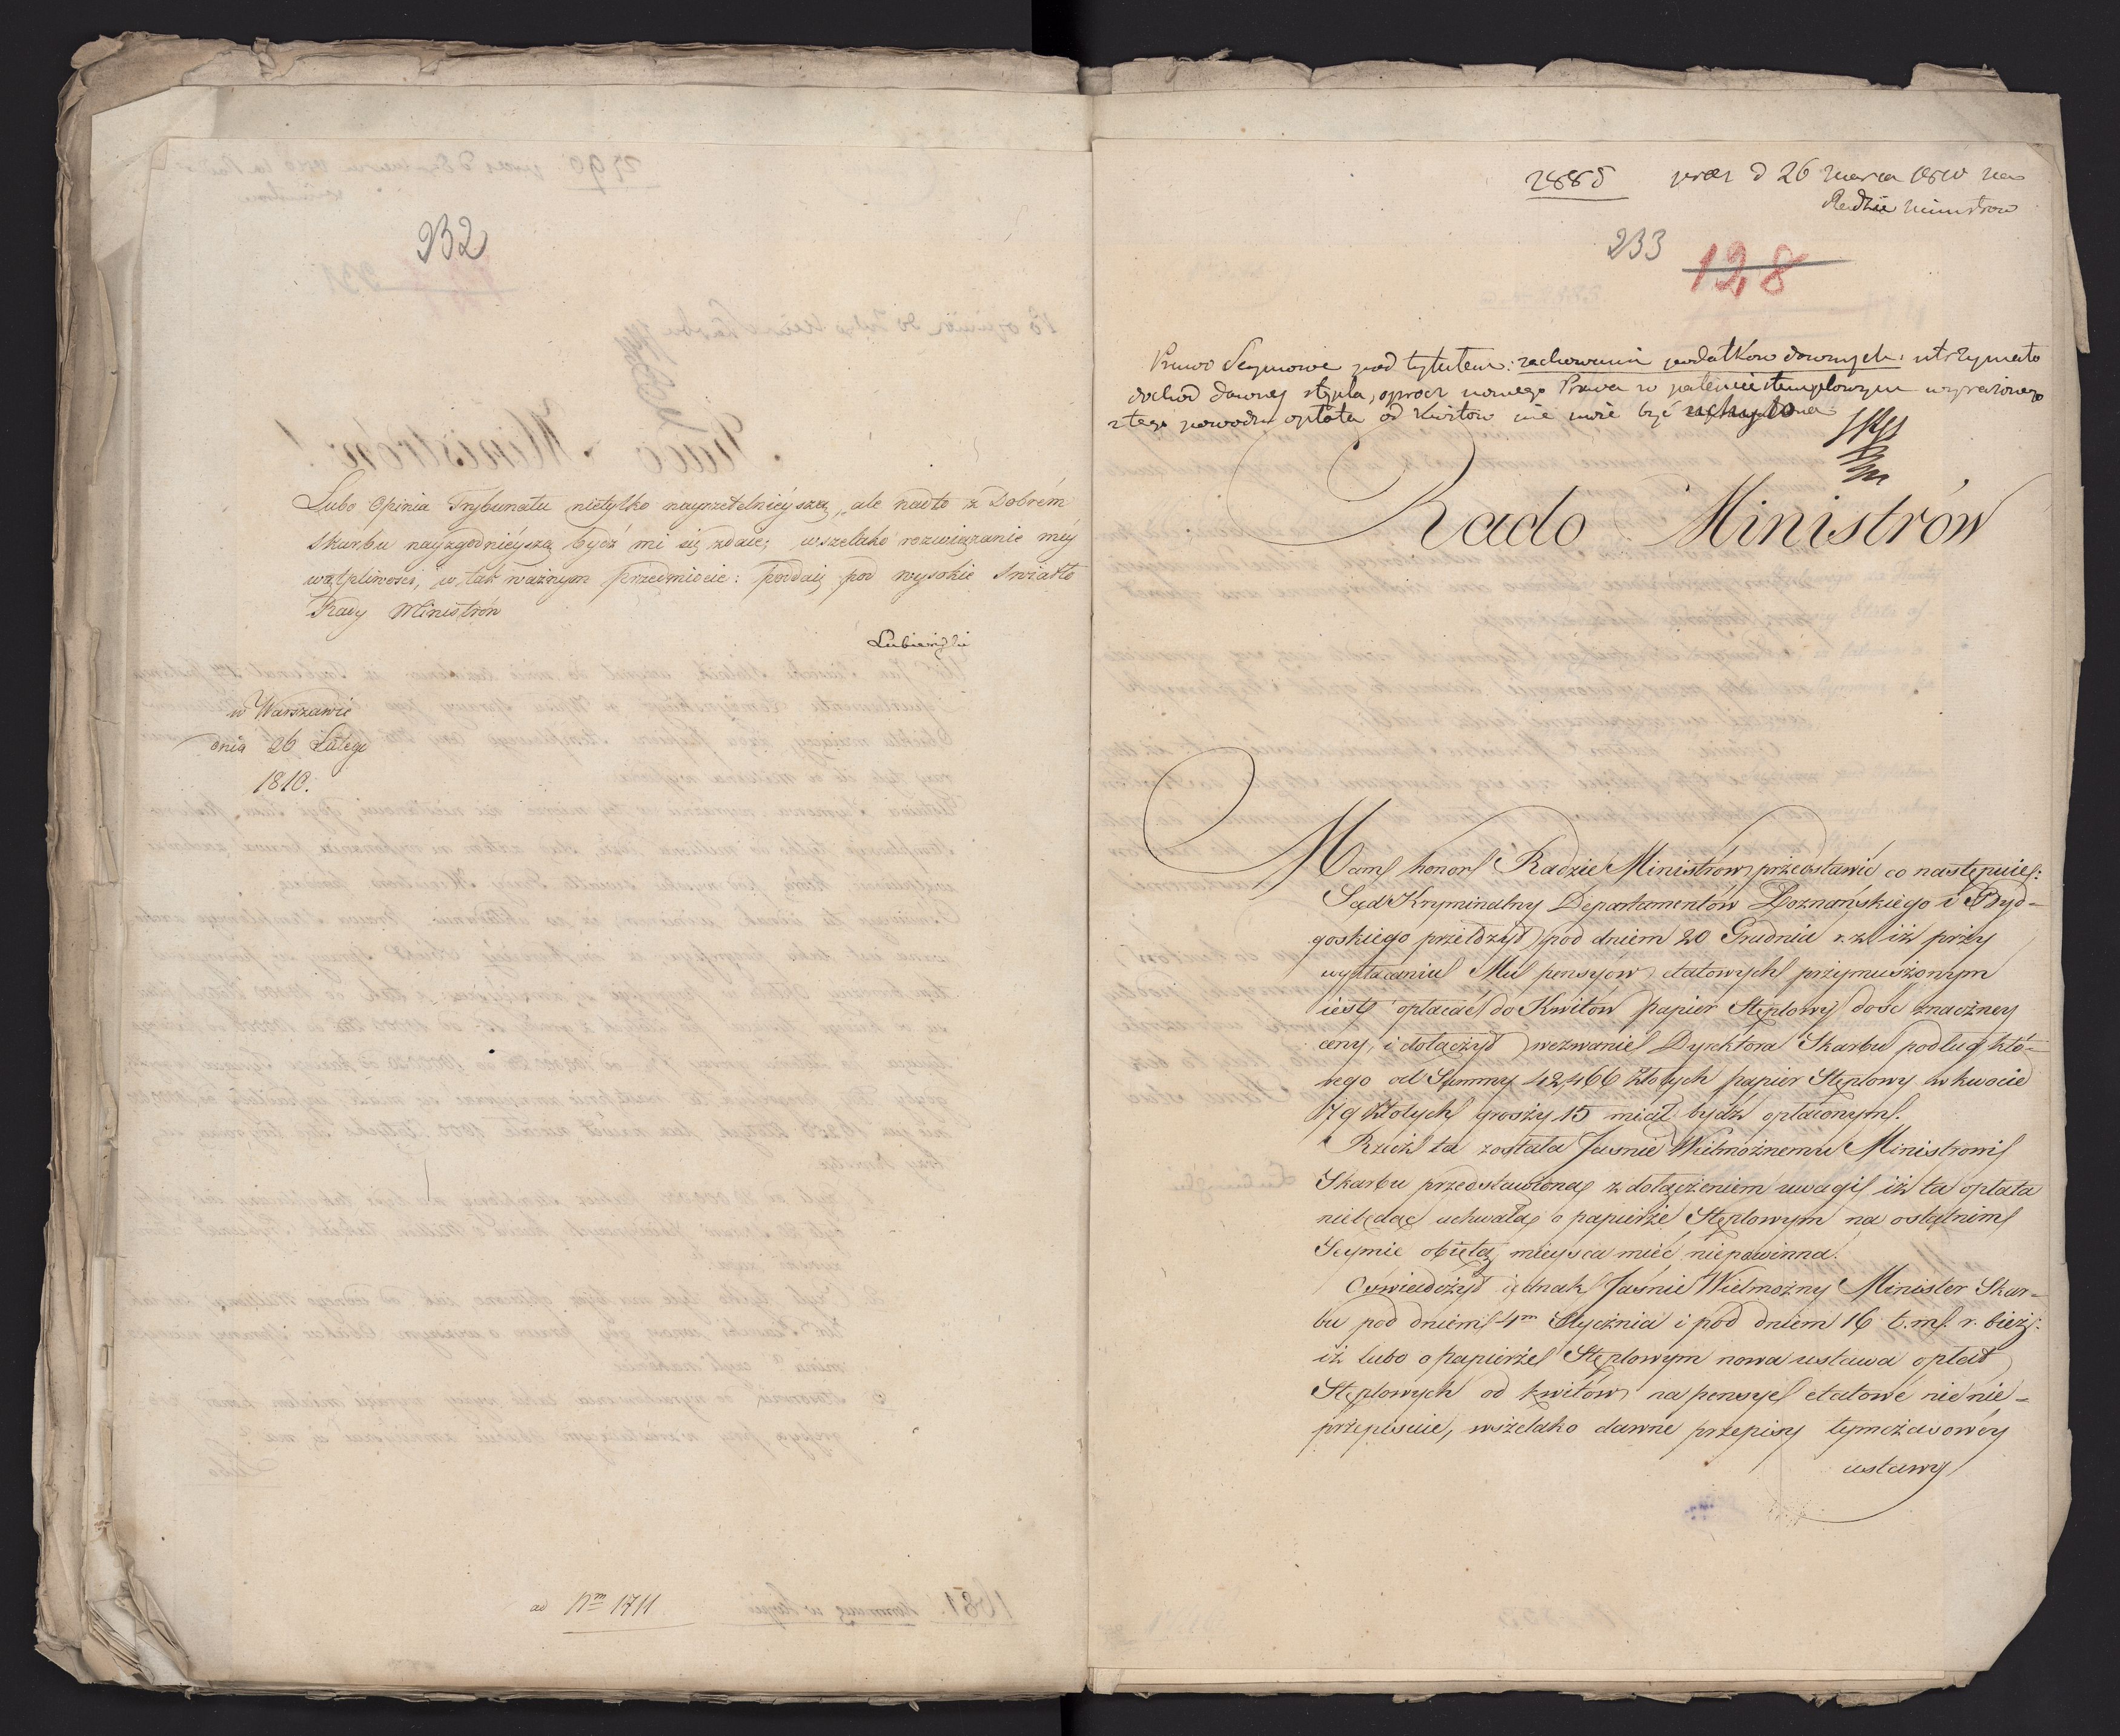 232
Lubo Opinia Trybunału nietylko nayrzetelnieyszą, ale nadto z Dobrém
Skarbu nayzgodnieyszą bydź mi się zdaie; wszelako rozwiązanie méy
wątpliwości, w tak ważnym przedmiocie: poddaię pod wysokie Swiatło
Rady Ministrów
Lubieński
w Warszawie
dnia 26 Lutego
1810.
ad Nrm 1711
2885 prez d 26 marca 1810 na
Radzie Ministrow
233 128
Prawo Seymowe pod tytułem: zachowanie podatkow dawnych: utrzymało
dochod dawney stępla, oprocz nowego Prawa w patencie stemplowym wyrażonego
z tego powodu opłata od kwitow nie może być uchylona
Rado Ministrów
Mam honor Radzie Ministrów przedstawić co następuie:
Sąd Kryminalny Departamentów Poznańskiego i Byd-
goskiego przełożył pod dniem 20 Grudnia r. z. iż przy
wypłacaniu Mu pensyów etatowych przymuszonym
iest opłacać do Kwitów papier Stęplowy dość znaczney
ceny, i dołączył wezwanie Dyrektora Skarbu podług któ-
rego od Summy 42,466 Złotych papier Stęplowy w kwocie
79 Złotych groszy 15 miał bydź opłaconym.
Rzecz ta została Jaśnie Wielmożnemu Ministrowi
Skarbu przedstawiona z dołączeniem uwagi iż ta opłata
niebędąc uchwałą o papierze Stęplowym na ostatnim
Seymie obiętą mieysca mieć niepowinna.
Oświadczył iednak Jaśnie Wielmożny Minister Skar-
bu pod dniem 4m Stycznia i pod dniem 16 t. m. r. bież:
iż lubo o papierze Stęplowym nowa ustawa opłat
Stęplowych od kwitów na pensye etatowe nie nie-
przepisuie, wszelako dawne przepisy tymczasowéy
ustawy